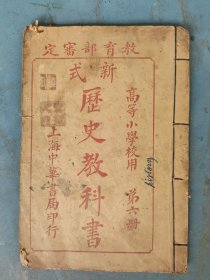 教育部審定
新式
歷史教科書
高等小學校用
第六册
上海中華書局印行